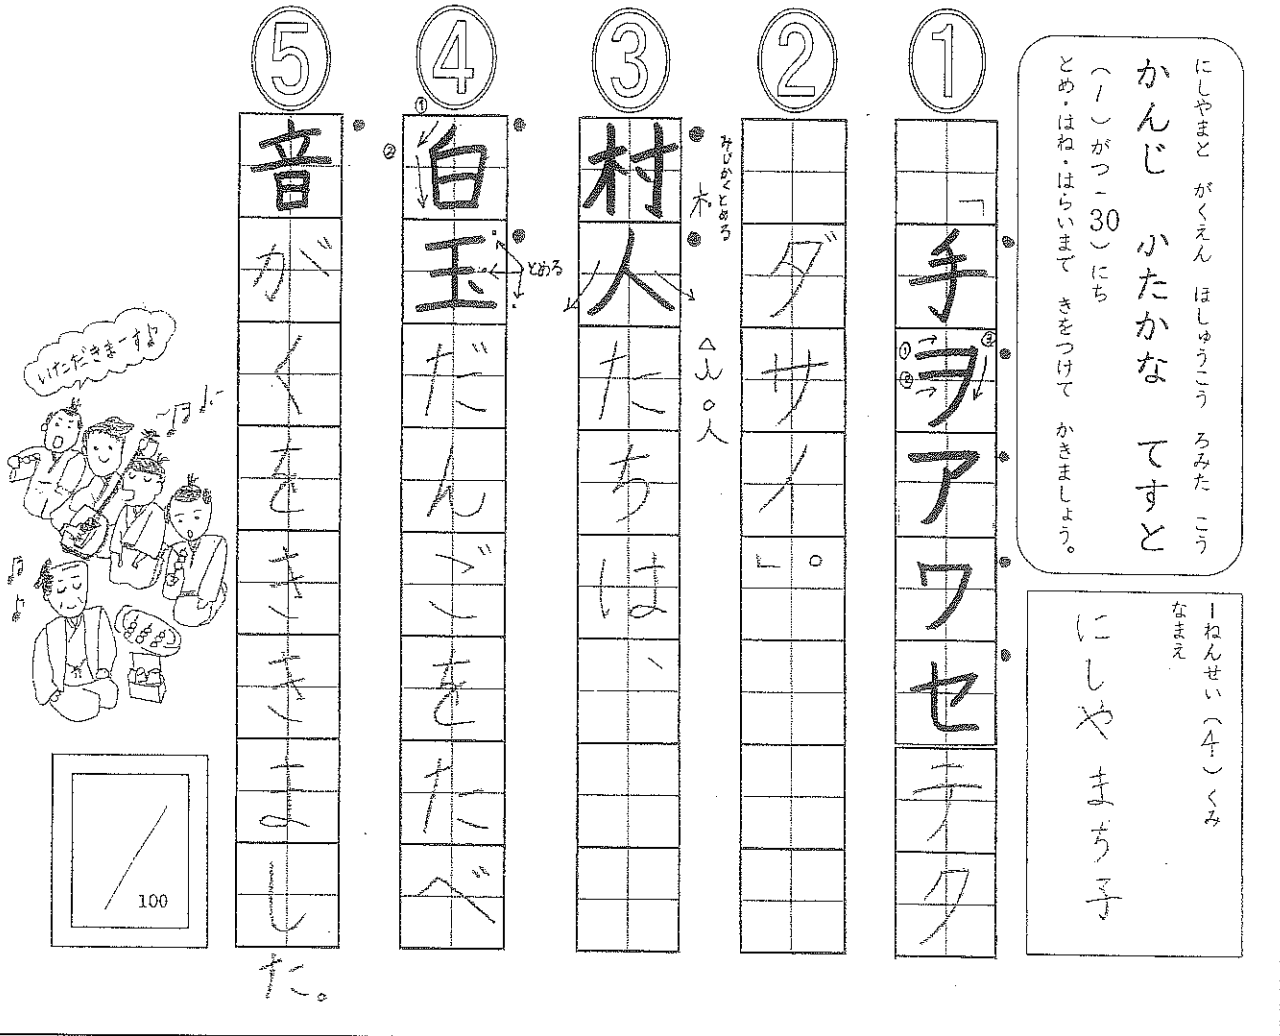 にしやまと がくえん ほしゅうこう ろみた こう
かんじ かたかな てすと
(1)がつ-30)にち
とめ・はね・はらいまで きをつけて かきましょう。
1ねんせい(4)くみ
なまえ
にしやまち子
①
「手ヲアワセテク
① ② ③
②
ダサイ」。
みじかくとめる
③
村人たちは、
とめる
④
白玉だんごをたべ
① ②
⑤
音がくをききました。
いただきまーす♪
100